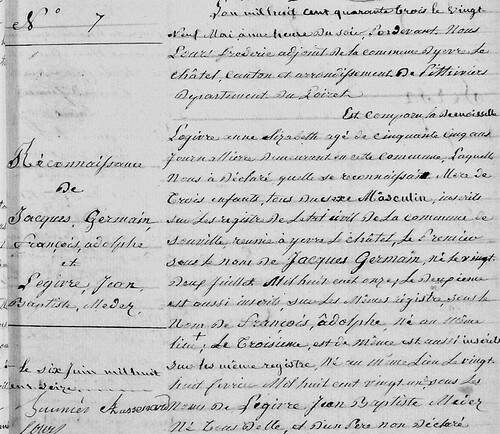 N° 7
Reconnaissance
de
Jacques, Germain,
François, adolphe
et
Legivre, Jean,
Baptiste, Medez,
Le six Juin mil huit
L'an mil huit cent quarante trois le vingt
neuf Mai à une heure du soir, Pardevant Nous
Louis frederic adjoint de la commune dyevre le
châtel, Canton et arrondissement de Pithiviers
Departement du Loiret
Est Comparu la demoiselle
Legivre anne Elizabeth agé de cinquante cinq ans
Journallière demeurant en cette Commune, Laquelle
Nous à Déclaré quelle se reconnaissait Mere de
Trois enfants, tous du sexe Masculin, inscrits
sur les registre de Letat civil de La commune de
souville reunie à yevre le châtel, Le Premier
sous le nom de Jacques Germain, né le vingt
Deux Juillet Mil huit cent onze, Le Deuxieme
est aussi inscrit, sur les Mêmes régistre, sous le
Nom de François, âdolphe, Né au même
lieu, Le Troisieme, est de même est aussi inséréls
sur les même registre, Né au même Lieu le vingt
huit fevrier Mil huit cent vingt un sous les
Noms de Legivre Jean Baptiste Medez
Né tous delle, et d'un Père non Déclaré